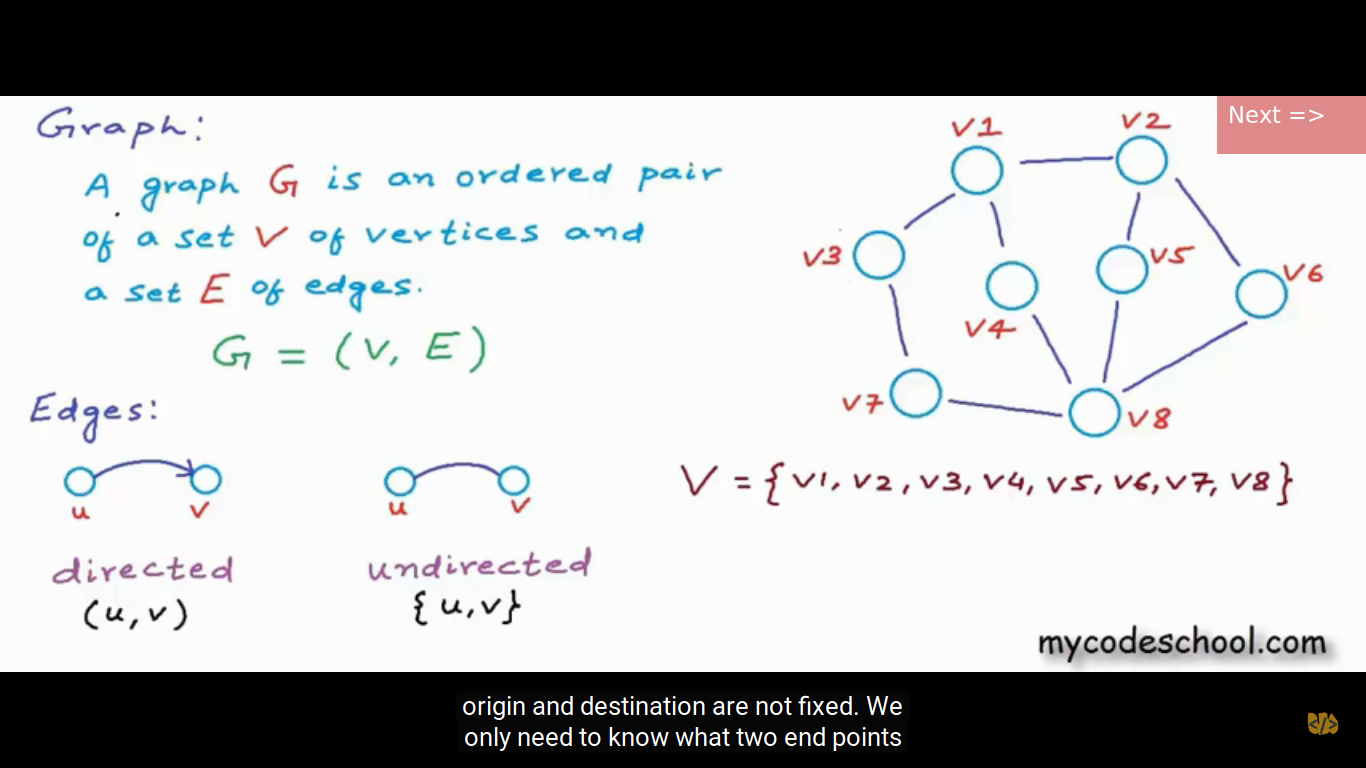 Graph:
A graph G is an ordered pair
of a set V of vertices and
a set E of edges.
G = (V, E)
Edges:
u
v
directed
(u, v)
u
v
undirected
{u, v}
Next =>
v1
v2
v3
v4
v5
v6
v7
v8
V = {v1, v2, v3, v4, v5, v6, v7, v8}
mycodeschool.com
origin and destination are not fixed. We
only need to know what two end points